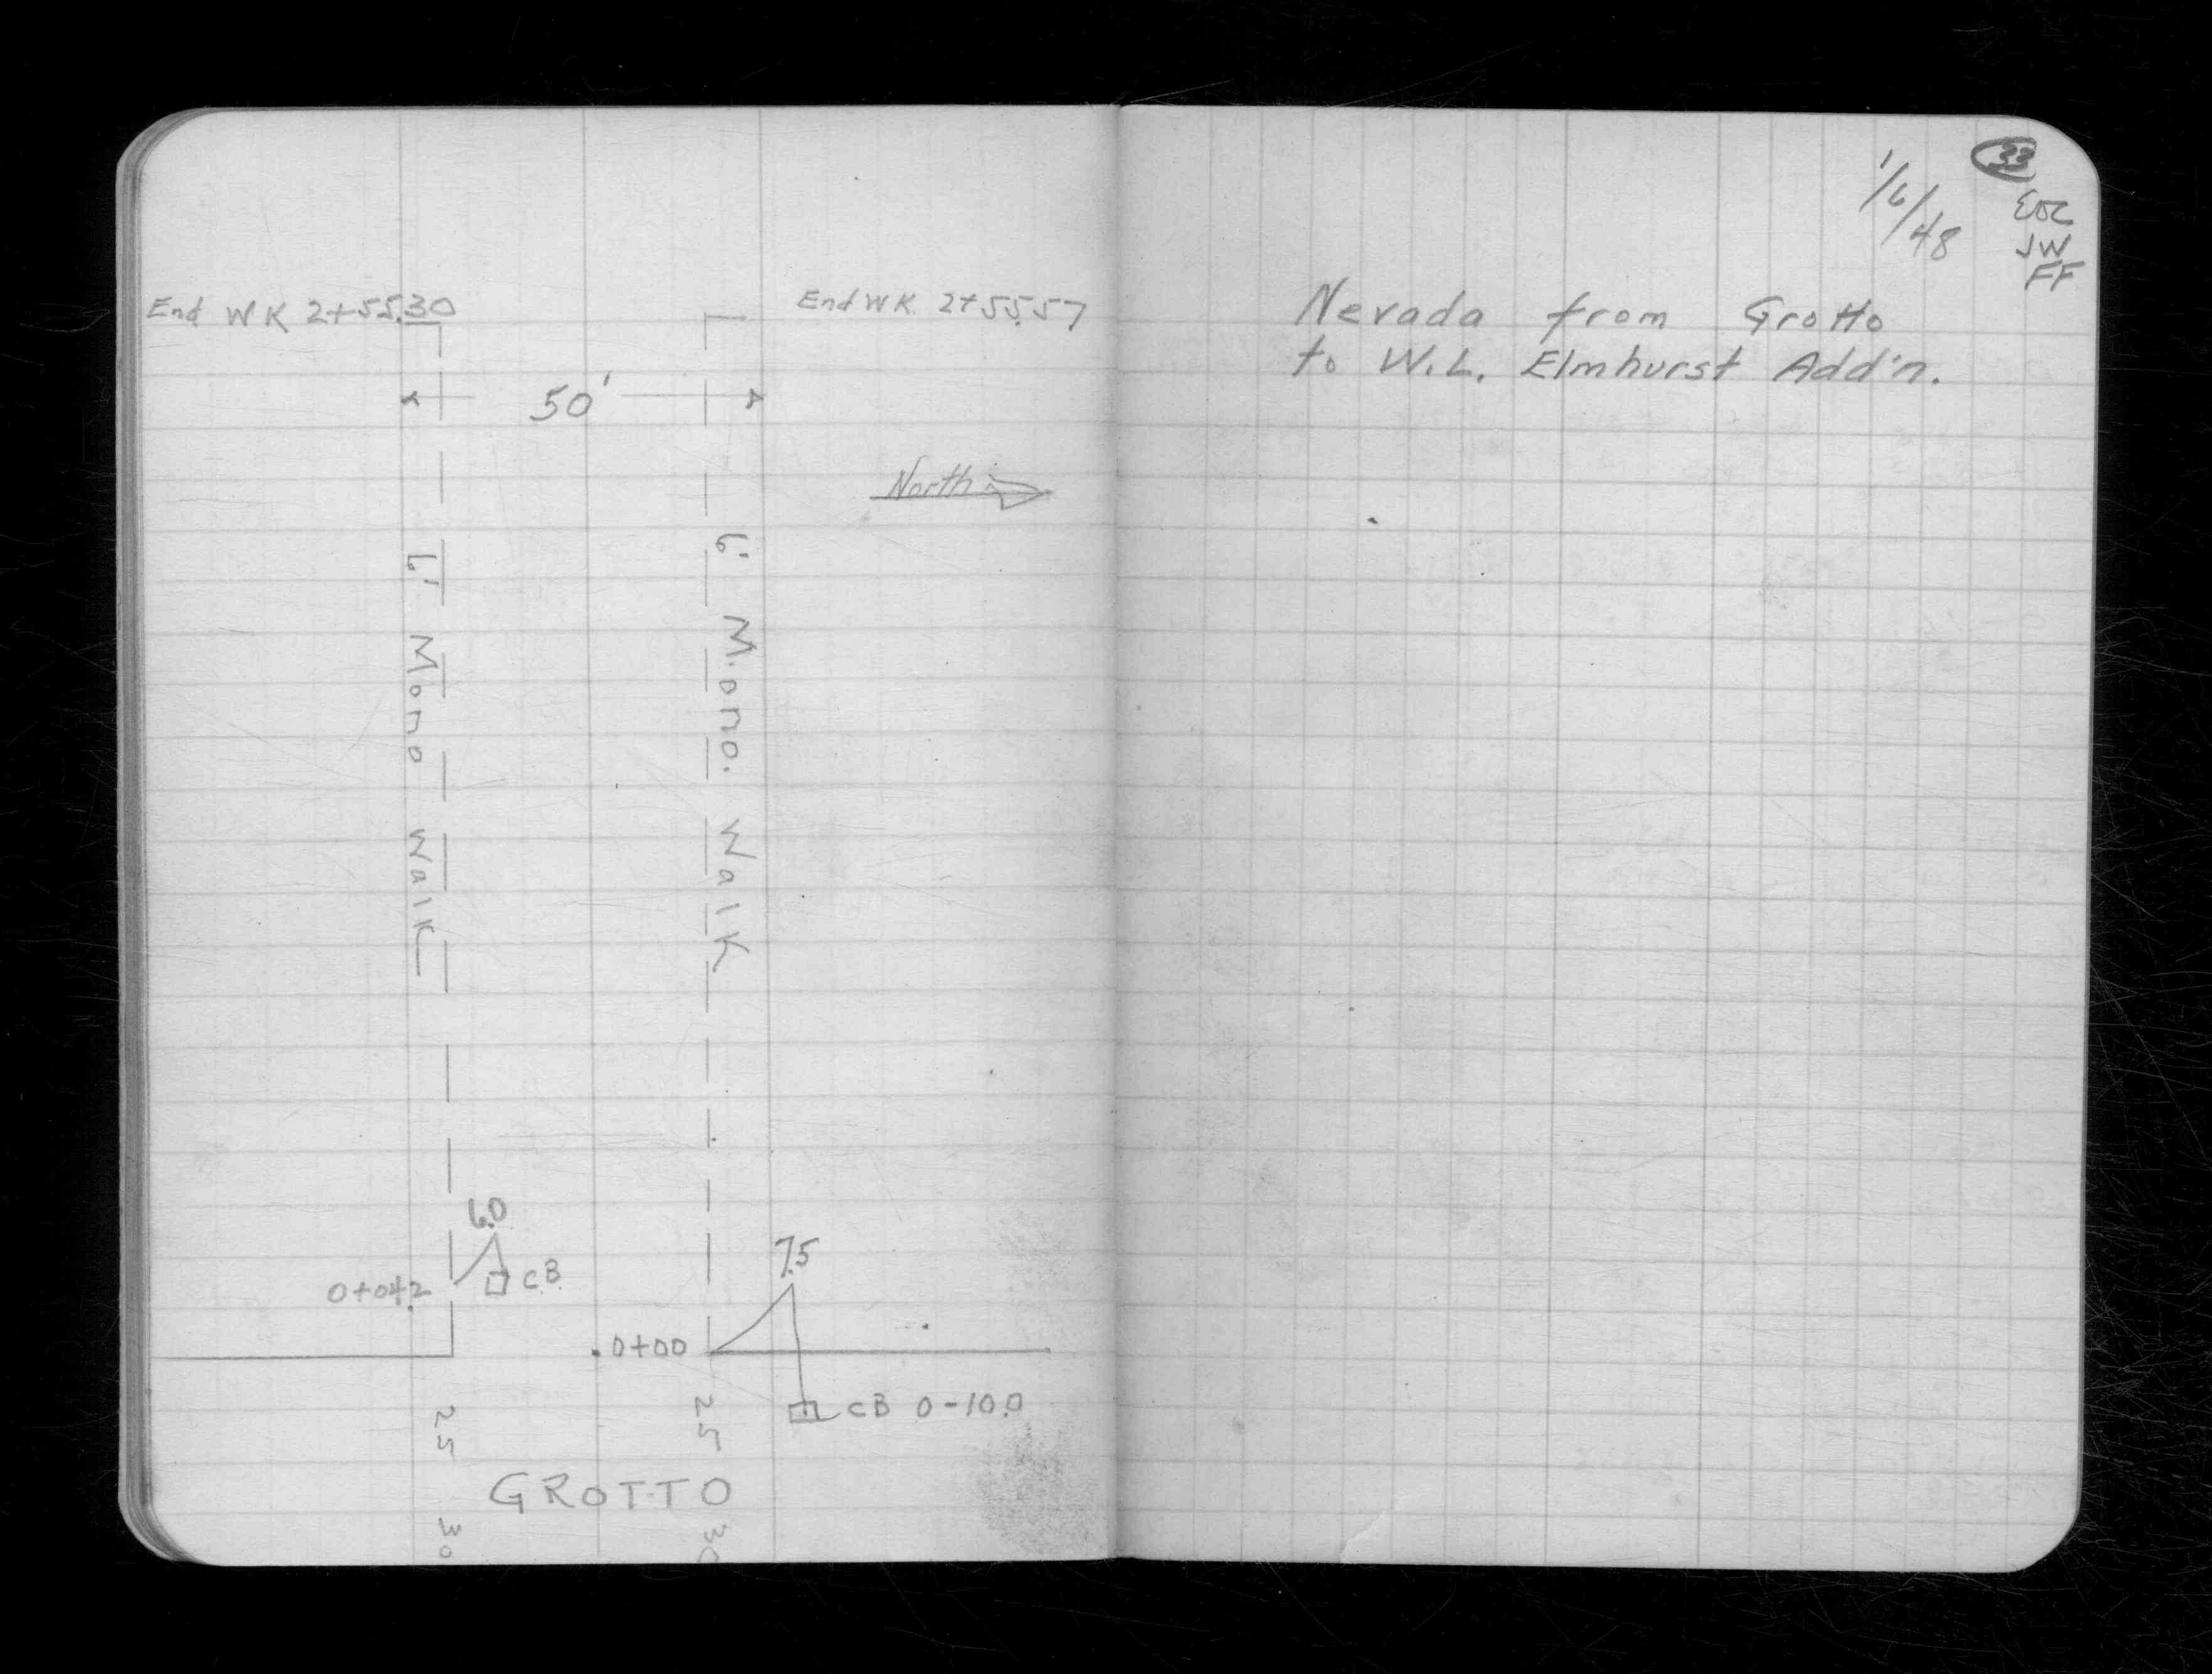 End WK 2+55.30
End WK. 2+55.57
50'
North
6' Mono Walk
6' Mono. Walk
6.0
CB
0+04.2
7.5
0+00
CB 0-10.0
25
25
GROTTO
30
30
33
1/6/48
EOC
JW
FF
Nevada from Grotto
to W.L. Elmhurst Add'n.